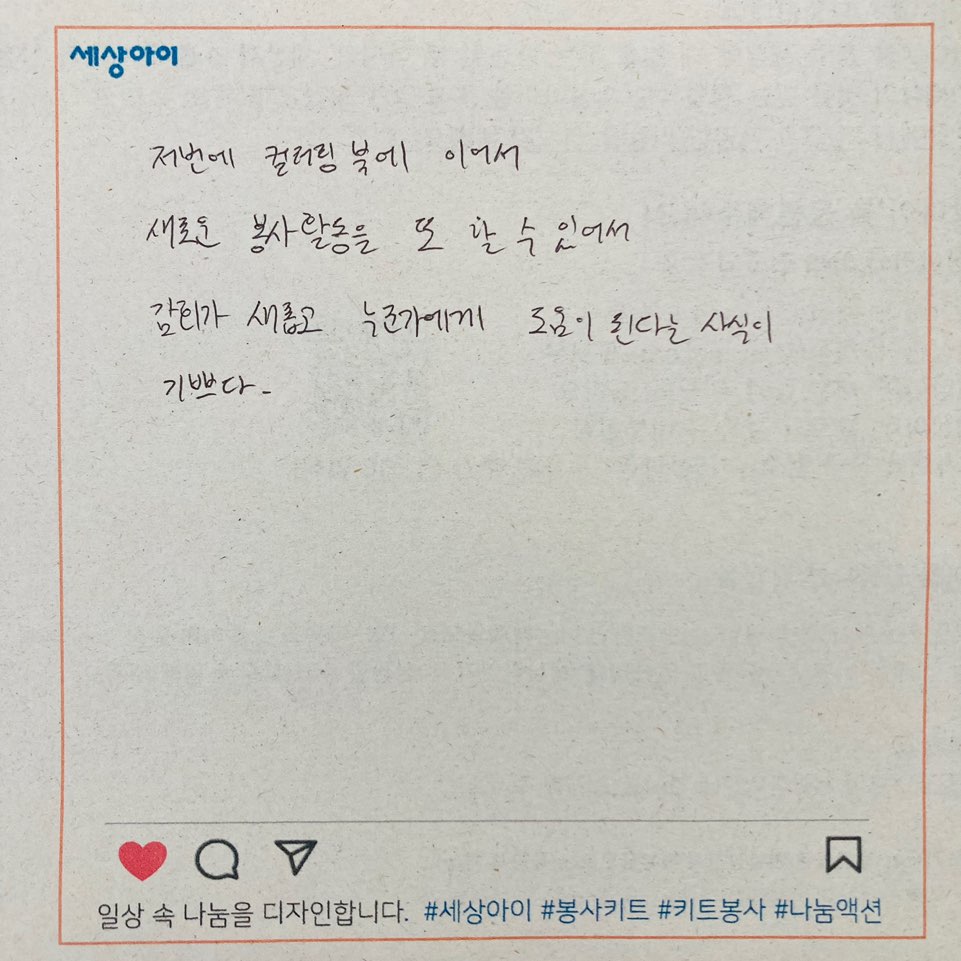 세상아이
저번에 컬러링 북에 이어서
새로운 봉사활동을 또 할 수 있어서
감회가 새롭고 누군가에게 도움이 된다는 사실이
기쁘다.
일상 속 나눔을 디자인합니다. #세상아이 #봉사키트 #키트봉사 #나눔액션